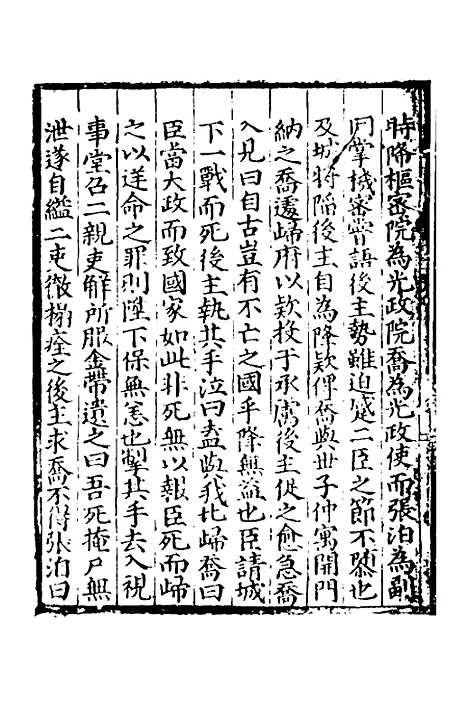 時降樞密院為光政院喬為光政使而張洎為副
同掌機密嘗語後主勢雖迫蹙二臣之節不隳也
及城將陷後主自為降欵俾喬與世子仲寓開門
納之喬遽歸府以欵投于承霤後主促之愈急喬
入見曰自古豈有不亡之國乎降無益也臣請城
下一戰而死後主執其手泣曰盍與我北歸喬曰
臣當大政而致國家如此非死無以報臣死而歸
之以逆命之罪則陛下保無恙也掣其手去入視
事堂召二親吏解所服金帶遺之曰吾死掩戶無
泄遂自縊二吏徹榻瘞之後主求喬不得張洎曰